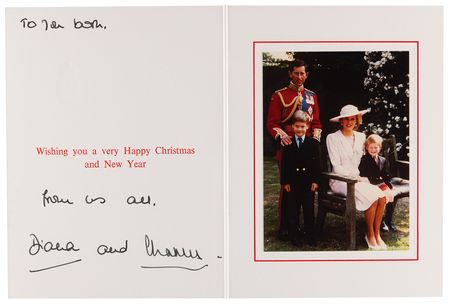 To you both.
Wishing you a very Happy Christmas
and New Year
from us all.
Diana and Charles.